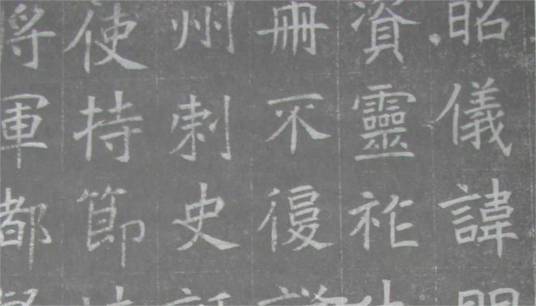 昭儀諱
資靈祚
冊不復
州刺史
使持節
將軍都